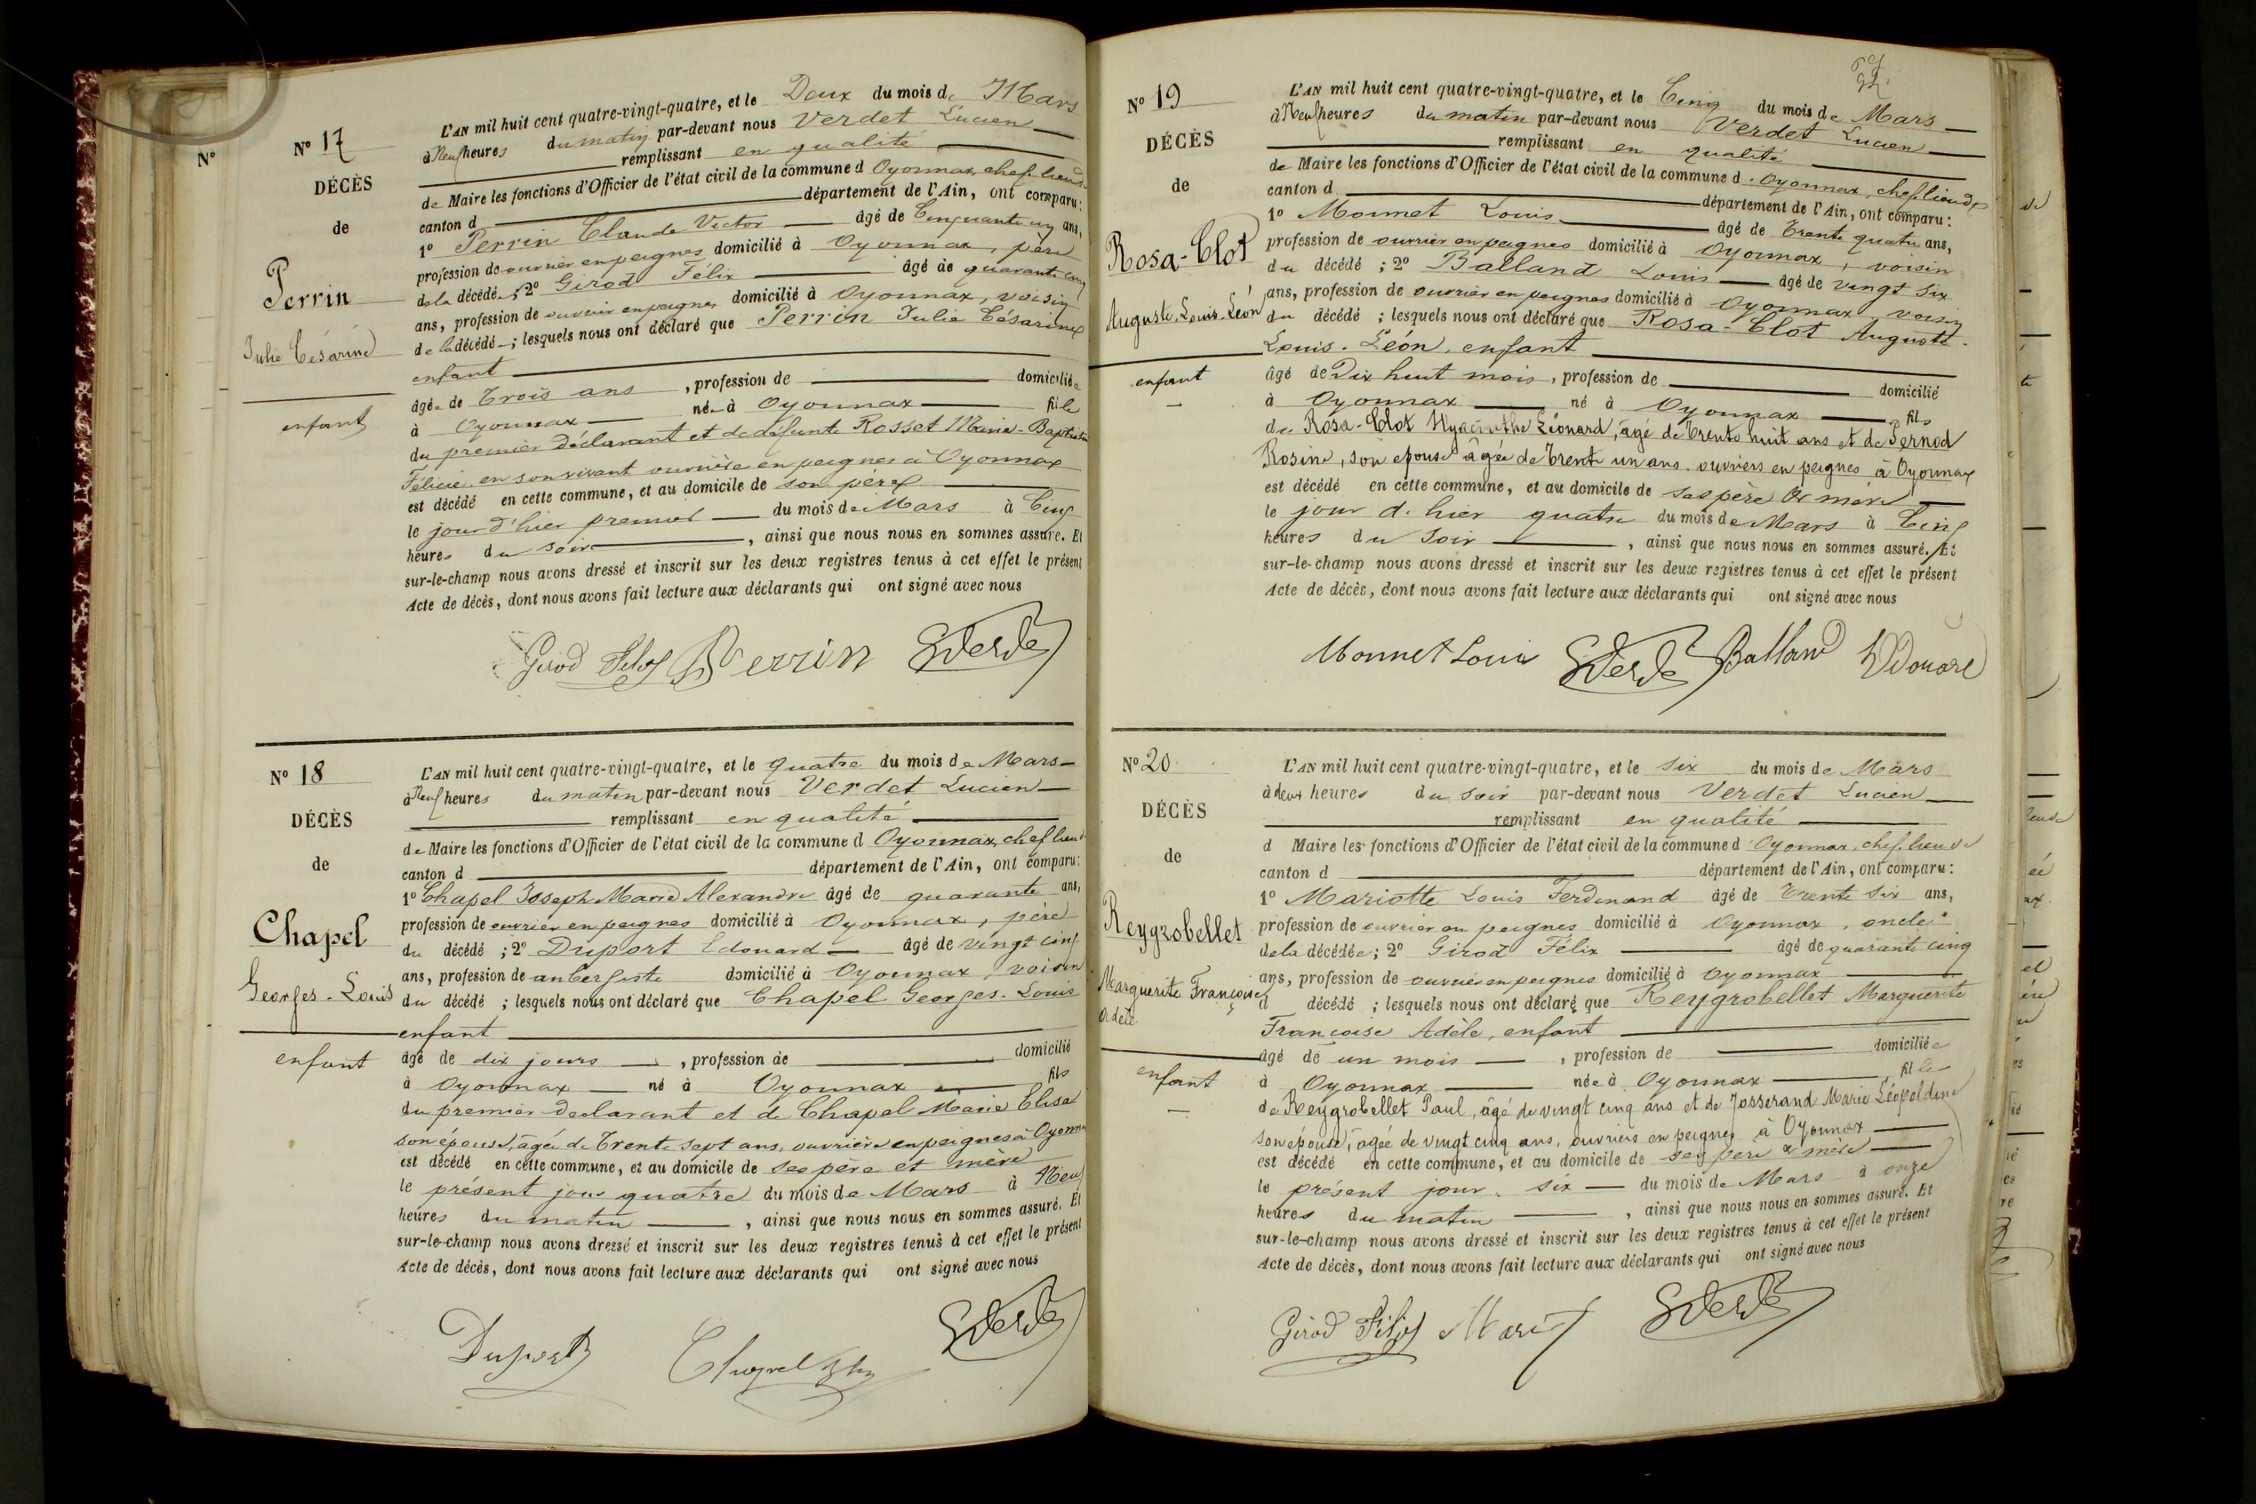 N°
N° 17
DÉCÈS
de
Perrin
Julie Césarine
enfant
L'AN mil huit cent quatre-vingt-quatre, et le Deux du mois de Mars
à Neuf heures du matin par-devant nous Verdet Lucien
remplissant en qualité
de Maire les fonctions d'Officier de l'état civil de la commune d'Oyonnax, chef lieu de
canton d département de l'Ain, ont comparu:
1° Perrin Claude Victor âgé de Cinquante un ans,
profession de ouvrier en peignes domicilié à Oyonnax, père
de la décédée; 2° Girod Félix âgé de quarante cinq
ans, profession de ouvrier en peignes domicilié à Oyonnax, voisin
de la décédée; lesquels nous ont déclaré que Perrin Julie Césarine
enfant
âgée de Trois ans, profession de domiciliée
à Oyonnax née à Oyonnax fille
du premier déclarant et de défunte Rosset Marie-Baptistine
Félicie en son vivant ouvrière en peignes à Oyonnax
est décédé en cette commune, et au domicile de son père
le jour d'hier premier du mois de Mars à Cinq
heures du soir, ainsi que nous nous en sommes assuré. Et
sur-le-champ nous avons dressé et inscrit sur les deux registres tenus à cet effet le présent
Acte de décès, dont nous avons fait lecture aux déclarants qui ont signé avec nous
Girod Félix Perrin Verdet
N° 18
DÉCÈS
de
Chapel
Georges-Louis
enfant
L'AN mil huit cent quatre-vingt-quatre, et le quatre du mois de Mars
à Neuf heures du matin par-devant nous Verdet Lucien
remplissant en qualité
de Maire les fonctions d'Officier de l'état civil de la commune d Oyonnax, chef lieu de
canton d département de l'Ain, ont comparu:
1° Chapel Joseph Marie Alexandre âgé de quarante ans,
profession de ouvrier en peignes domicilié à Oyonnax, père
du décédé; 2° Duport Edouard âgé de vingt cinq
ans, profession de aubergiste domicilié à Oyonnax, voisin
du décédé; lesquels nous ont déclaré que Chapel Georges-Louis
enfant
âgé de dix jours, profession de domicilié
à Oyonnax né à Oyonnax fils
du premier declarant et de Chapel Marie Elisa
son épouse, âgée de Trente sept ans, ouvrière en peignes à Oyonnax
est décédé en cette commune, et au domicile de ses père et mère
le présent jour quatre du mois de Mars à Neuf
heures du matin, ainsi que nous nous en sommes assuré. Et
sur-le-champ nous avons dressé et inscrit sur les deux registres tenus à cet effet le présent
Acte de décès, dont nous avons fait lecture aux déclarants qui ont signé avec nous
Duport Chapel Verdet
N° 19
DÉCÈS
de
Rosa-Clot
Auguste-Louis-Léon
enfant
L'AN mil huit cent quatre-vingt-quatre, et le Cinq du mois de Mars
à Neuf heures du matin par-devant nous Verdet Lucien
remplissant en qualité
de Maire les fonctions d'Officier de l'état civil de la commune d'Oyonnax, chef lieu de
canton d département de l'Ain, ont comparu:
1° Monnet Louis âgé de Trente quatre ans,
profession de ouvrier en peignes domicilié à Oyonnax, voisin
du décédé; 2° Balland Louis âgé de vingt six
ans, profession de ouvrier en peignes domicilié à Oyonnax, voisin
du décédé; lesquels nous ont déclaré que Rosa-Clot Auguste-
Louis-Léon, enfant
âgé de Dix huit mois, profession de domicilié
à Oyonnax né à Oyonnax fils
de Rosa-Clot Hyacinthe Léonard, âgé de Trente huit ans et de Pernod
Rosine, son épouse âgée de Trente un ans. ouvriers en peignes à Oyonnax
est décédé en cette commune, et au domicile de ses père & mère
le jour d'hier quatre du mois de Mars à Cinq
heures du Soir, ainsi que nous nous en sommes assuré. Et
sur-le-champ nous avons dressé et inscrit sur les deux registres tenus à cet effet le présent
Acte de décès, dont nous avons fait lecture aux déclarants qui ont signé avec nous
Monnet Louis Verdet Balland
N° 20
DÉCÈS
de
Reygrobellet
Marguerite Françoise
Adèle
enfant
L'AN mil huit cent quatre-vingt-quatre, et le six du mois de Mars
à deux heures du soir par-devant nous Verdet Lucien
remplissant en qualité
d Maire les fonctions d'Officier de l'état civil de la commune d'Oyonnax, chef lieu de
canton d département de l'Ain, ont comparu:
1° Mariotte Louis Ferdinand âgé de Trente six ans,
profession de ouvrier en peignes domicilié à Oyonnax, oncle
de la décédée; 2° Girod Félix âgé de quarante cinq
ans, profession de ouvrier en peignes domicilié à Oyonnax
d décédé; lesquels nous ont déclaré que Reygrobellet Marguerite
Françoise Adèle, enfant
âgé de un mois, profession de domiciliée
à Oyonnax née à Oyonnax, fille
de Reygrobellet Paul, âgé de vingt cinq ans et de Josserand Marie Léopoldine
son épouse, âgée de vingt cinq ans, ouvriers en peignes à Oyonnax
est décédé en cette commune, et au domicile de ses père & mère
le présent jour, six du mois de Mars à onze
heures du matin, ainsi que nous nous en sommes assuré. Et
sur-le-champ nous avons dressé et inscrit sur les deux registres tenus à cet effet le présent
Acte de décès, dont nous avons fait lecture aux déclarants qui ont signé avec nous
Girod Félix Verdet